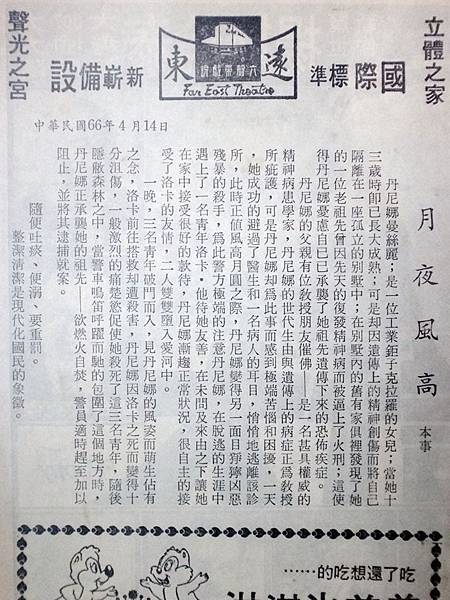 立體之家
國際標準
遠東
Far East Theatre
設備嶄新
聲光之宮
中華民國66年4月14日
月夜風高 本事
丹尼娜曼絲麗；是一位工業鉅子克拉羅的女兒；當她十
三歲時即已長大成熟；可是却因遺傳上的精神創傷而將自己
隔離在一座孤立的別墅中；在別墅內的舊有家俱裡發現了她
的一位老祖先曾因先天的復發精神病而被逼上了火刑；這使
得丹尼娜憂慮自己已承襲了她祖先遺傳下來的恐怖疾症。
丹尼娜的父親有位教授朋友催佛——是一名甚具權威的
精神病患學家，丹尼娜的世代生由與遺傳上的病症正爲教授
所疵護，可是丹尼娜却爲此事而感到極端苦惱和困擾，一天
，她成功的避過了醫生和一名病人的耳目，悄悄地逃離該診
所，此時正値風高月圓之際，丹尼娜變得另一面目猙獰凶惡
殘暴的殺手，爲此警方極端的注意丹尼娜，在脫逃的生涯中
遇上了一名青年洛卡，他待她友善，在未問及來由之下讓她
在家中接受很好的款待，丹尼娜漸趨正常狀況，很自主的接
受了洛卡的友情，二人雙雙墮入愛河中。
一晚，三名青年破門而入，見丹尼娜的風姿而萌生佔有
之念，洛卡前往搭救却遭殺害，丹尼娜因洛卡之死而變得十
分沮傷，一般激烈的痛楚慾促使她殺死了這三名青年，隨後
隱敝森林之中，當警車鳴笛呼躍而馳的包圍了這個地方時，
丹尼娜正承襲她的祖先——欲燃火自焚，警員適時趕至加以
阻止，並將其逮捕就案。
隨便吐痰、便溺、要重罰。
整潔清潔是現代化國民的象徵。
吃了還想吃的……